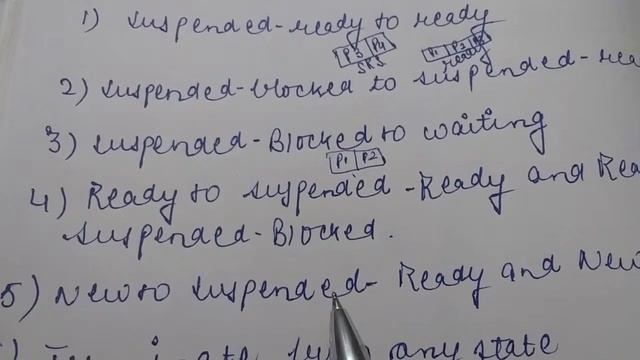 1) Suspended-ready to ready
P3 P4 P1 P2
SRS ready
2) Suspended-blocked to suspended-rea
3) Suspended-Blocked to waiting
P1 P2
4) Ready to suspended-Ready and Rea
Suspended-Blocked.
5) New to suspended-Ready and New
any state